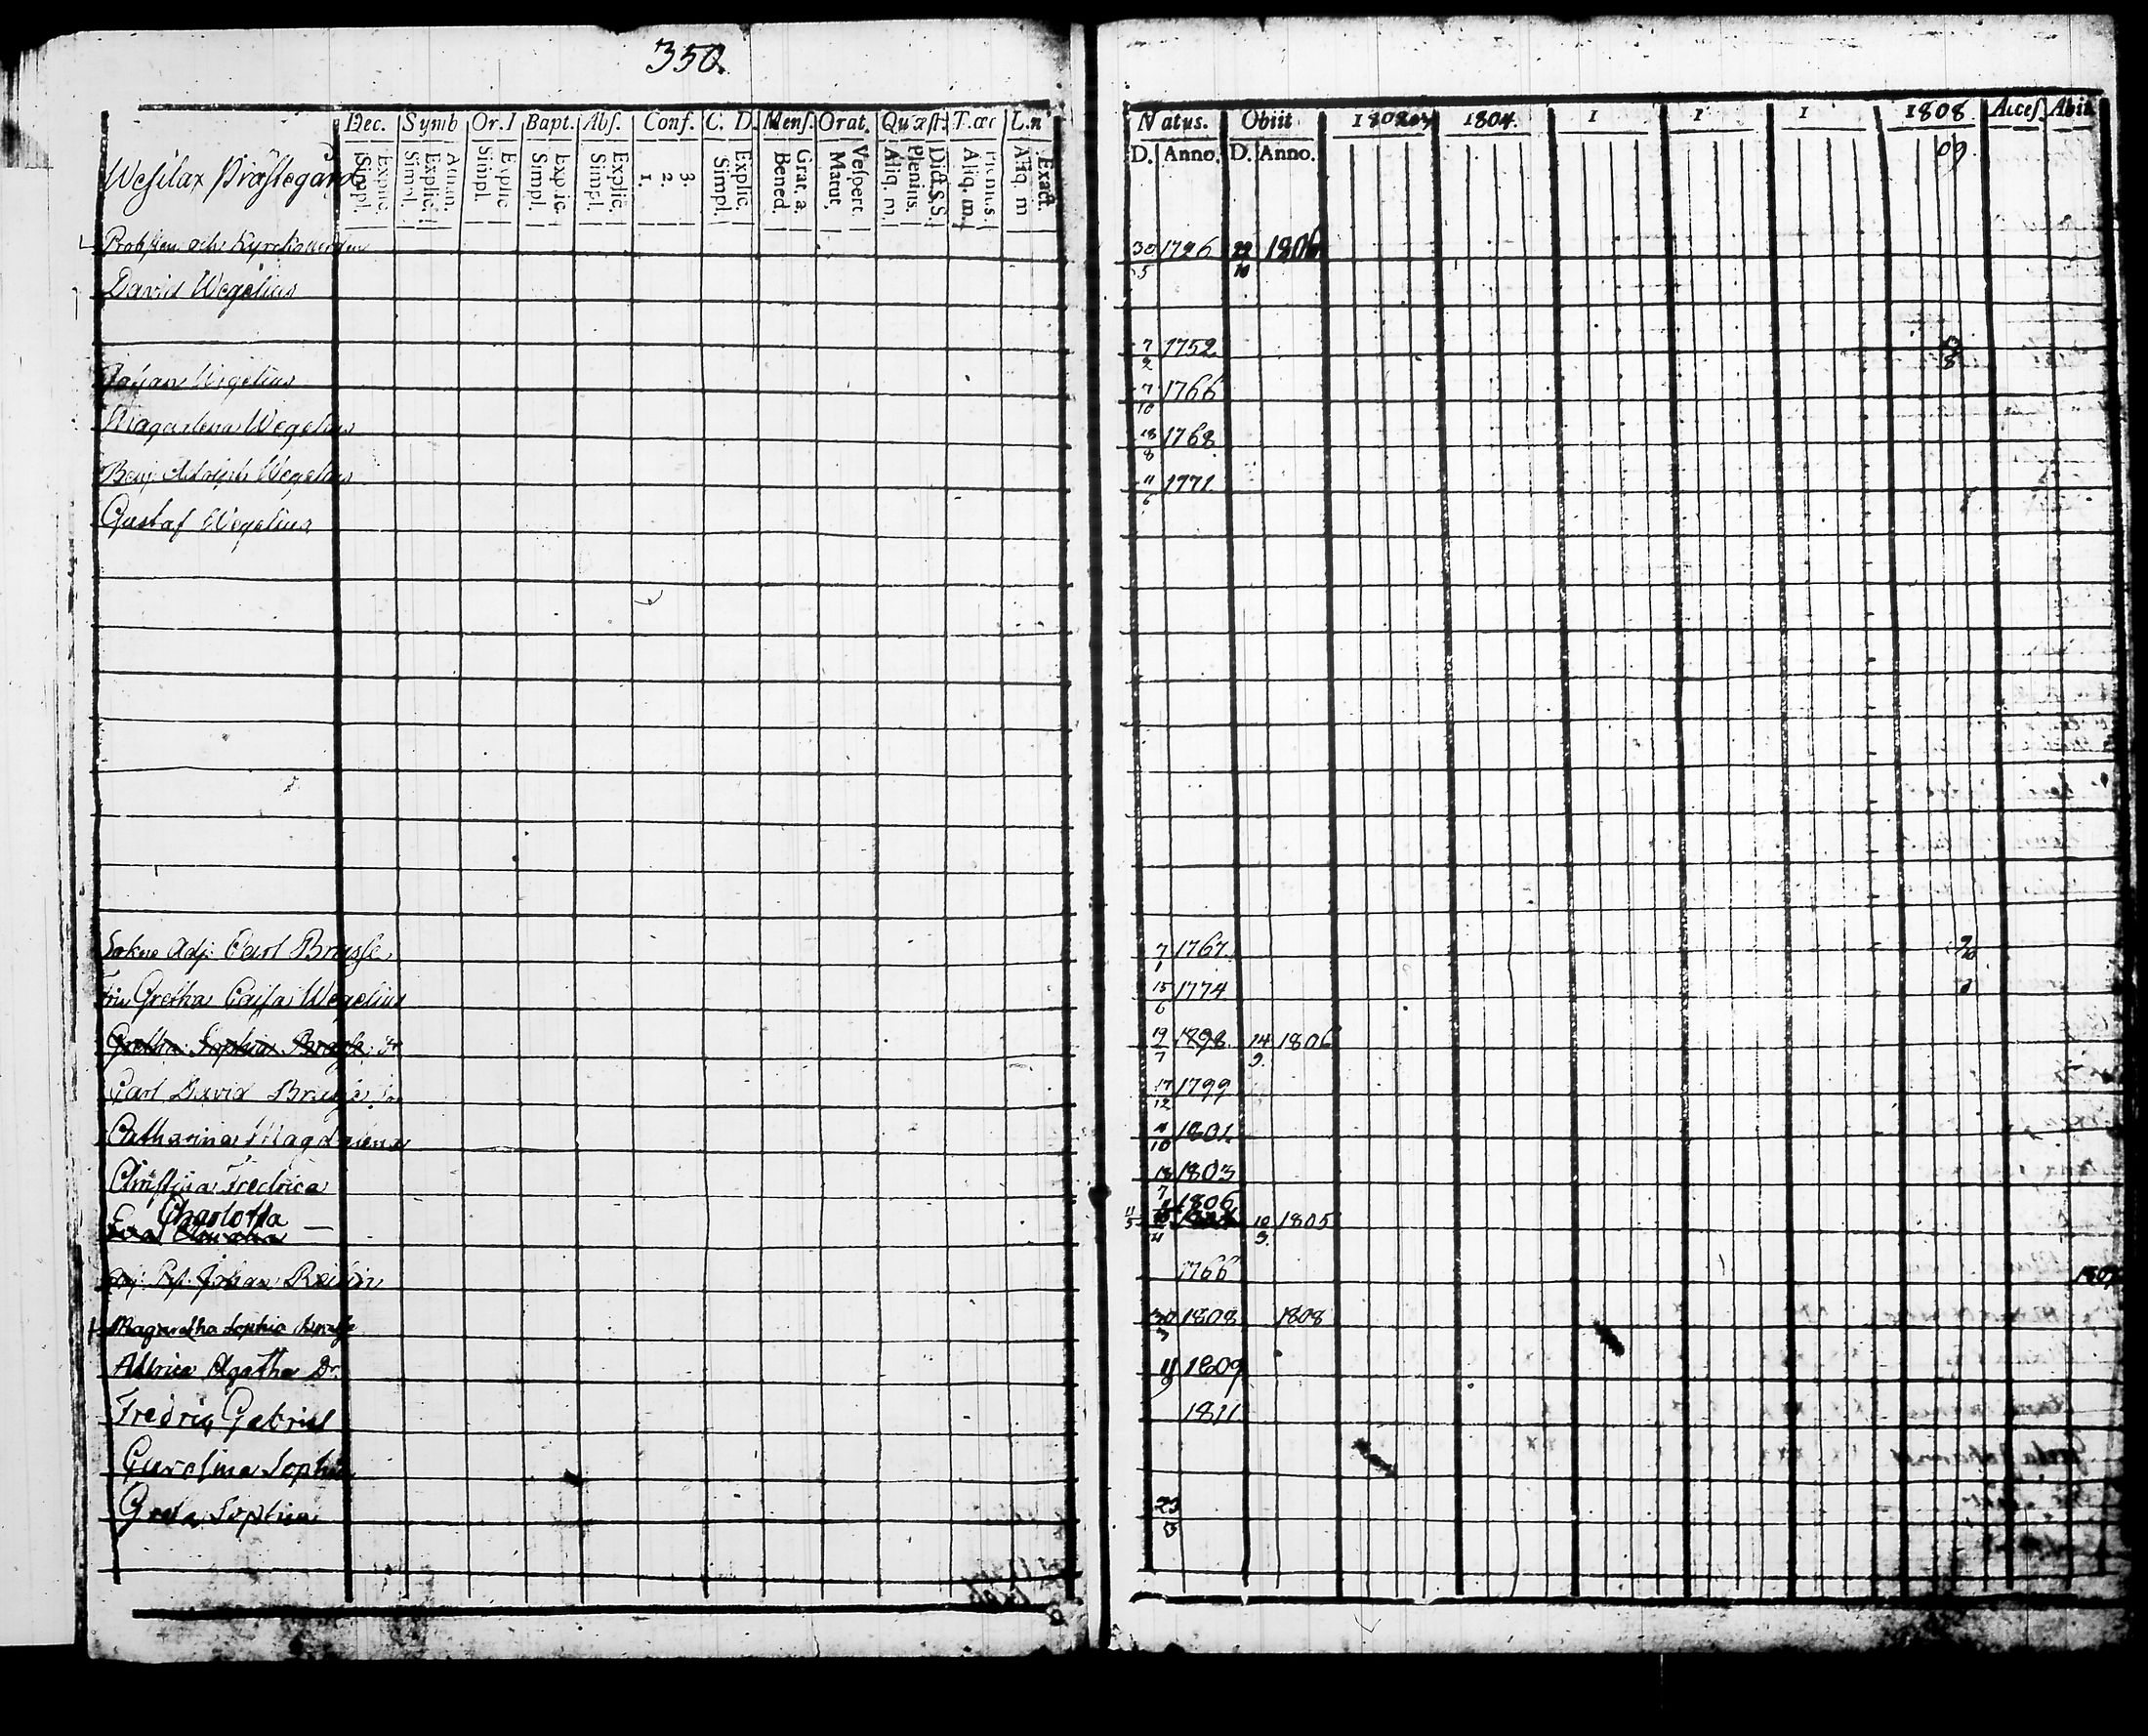 350.
Dec. Symb Or. I Bapt. Abs. Conf. C. D. Mens. Orat. Quæst. T. œc L. n
Wesilax Prästegård
Simpl. Explic. Simpl. Explic. Athan. Simpl. Explic Simpl. Explic. Simpl. Explic. 1. 2. 3. Simpl. Explic. Bened. Grat. a. Matut. Vespert. Aliq. m. Plenius. Dict. S.S. Aliq. m. Plenius. Aliq. m Exact.
Natus. Obiit 1804. 1 1 1 1808 Acces. Abiit
D. Anno. D. Anno. 09
Probsten och Kyrckoherden 30/5 1726 22/10 1806
David Wegelius
7/2 1752
Johan Wegelius 7/10 1766
Magdalena Wegelius 18/8 1768
Benj. Adolph Wegelius 11/6 1771
Gustaf Wegelius
Sokne Adj. Carl Brusse 7/1 1767
Fru Gretha Caisa Wegelius 15/6 1774
Gretha Sophia Brusse Dr 19/7 1898 14/9 1806
Carl David Brusse 17/12 1799
Catharina Magdalena 10 1801
Christina Fredrica 18/7 1803
Charlotta 1806
Eva 11/5 10/3 1805
Johan 1766 1807
Margaretha Sophia Brusse 30/3 1808 1808
Albrica Agatha Dr 11/9 1809
Fredric Gabriel 1811
Carolina Sophia
Greta Sophia 23/3